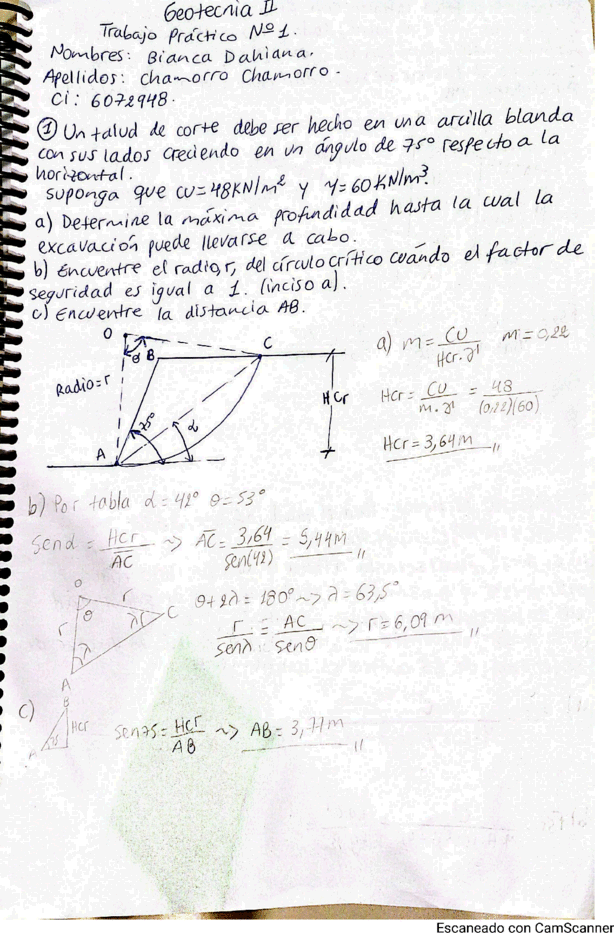 Geotecnia II
Trabajo Práctico Nº1.
Nombres: Bianca Dahiana.
Apellidos: Chamorro Chamorro.
Ci: 6072948.
① Un talud de corte debe ser hecho en una arcilla blanda
con sus lados creciendo en un ángulo de 75° respecto a la
horizontal.
Suponga que cu=48KN/m² y γ=60KN/m³.
a) Determine la máxima profundidad hasta la cual la
excavación puede llevarse a cabo.
b) Encuentre el radio, r, del círculo crítico cuándo el factor de
seguridad es igual a 1. (inciso a).
c) Encuentre la distancia AB.
O
θ B
C
Radio=r
75°
α
A
HCr
a) m = CU / Hcr.γ m=0,22
Hcr = CU / m.γ = 48 / (0,22)(60)
Hcr = 3,64m
b) Por tabla α=42° θ=53°
Senα = Hcr / AC ~> AC = 3,64 / Sen(42) = 5,44m
O
r
θ
r
λ
C
λ
A
θ+2λ=180° ~> λ=63,5°
r / Senλ = AC / Senθ ~> r=6,09 m
c)
B
Hcr
A
Sen75 = Hcr / AB ~> AB = 3,77m
Escaneado con CamScanner